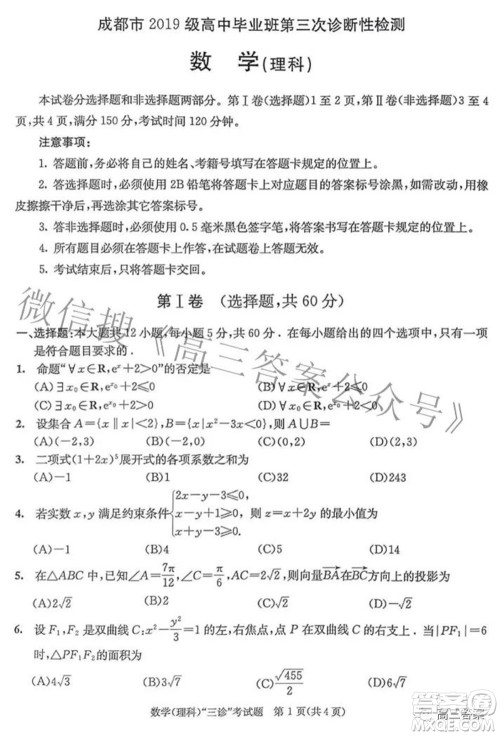 成都市 2019 级高中毕业班第三次诊断性检测
数 学(理科)
本试卷分选择题和非选择题两部分。第Ⅰ卷(选择题)1 至 2 页,第Ⅱ卷(非选择题)3 至 4
页,共 4 页,满分 150 分,考试时间 120 分钟。
注意事项:
1. 答题前,务必将自己的姓名、考籍号填写在答题卡规定的位置上。
2. 答选择题时,必须使用 2B 铅笔将答题卡上对应题目的答案标号涂黑,如需改动,用橡
皮擦擦干净后,再选涂其它答案标号。
3. 答非选择题时,必须使用 0.5 毫米黑色签字笔,将答案书写在答题卡规定的位置上。
4. 所有题目必须在答题卡上作答,在试题卷上答题无效。
5. 考试结束后,只将答题卡交回。
第Ⅰ卷 (选择题,共 60 分)
一、选择题:本大题共 12 小题,每小题 5 分,共 60 分。在每小题给出的四个选项中,只有一项是
符合题目要求的.
1. 命题“∀x∈R,eˣ+2>0”的否定是
(A)∃x₀∈R,e^{x₀}+2≤0 (B)∀x∈R,eˣ+2≤0
(C)∃x₀∈R,e^{x₀}+2>0
2. 设集合 A={x||x|<2},B= 则 A∪B=
(A)(-2,3) (B)(-2,0) (C)(0,2) (D)(2,3)
3. 二项式(1+2x)⁵展开式的各项系数之和为
(A)-1 (B)1 (C)32 (D)243
4. 若实数 x,y 满足约束条件{2x-y-3≤0, x-y+1≥0, x+y-3≥0, 则 z=x+y 的最大值为
(A)-1 (B)4 (C)9 (D)12
5. 在△ABC 中,已知 A=7π/12,C=π/6,AC=2√2,则向量BA在BC方向上的投影为
(A)2√2 (B)2 (C)√2
6. 设 F₁,F₂ 是双曲线 C:x²-y²/3=1 的左,右焦点,点 P 在双曲线 C 的右支上.当|PF₁|=6
时,△PF₁F₂ 的面积为
(A)4√3 (B)3√7 (C)√455/2 (D)6√7
数学(理科)“三诊”考试题 第 1 页(共 4 页)
微信搜《高三答案公众号》
高三答案